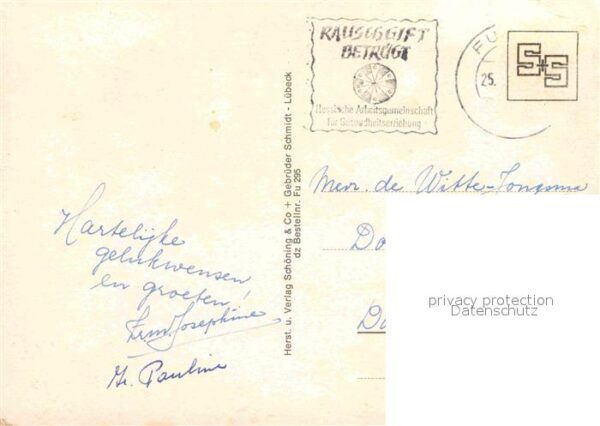 RAUSCHGIFT
BETRÜGT
Hessische Arbeitsgemeinschaft
für Gesundheitserziehung
FU
25.
S+S
Herst. u. Verlag Schöning & Co + Gebrüder Schmidt - Lübeck
dz Bestellnr. Fu 295
Mevr. de Witte-Jongsma
Do
Du
Hartelijke
gelukwensen
en groeten!
Zr. M. Josephine
Zr. Pauline
privacy protection
Datenschutz